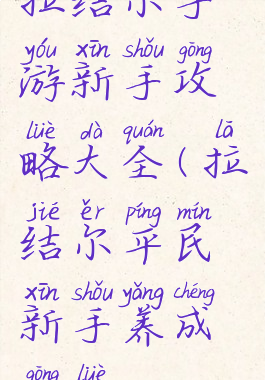 拉结尔手
yóu xīn shǒu gōng
游新手攻
lüè dà quán lā
略大全(拉
jié ěr píng mín
结尔平民
xīn shǒu yǎng chéng
新手养成
gōng lüè